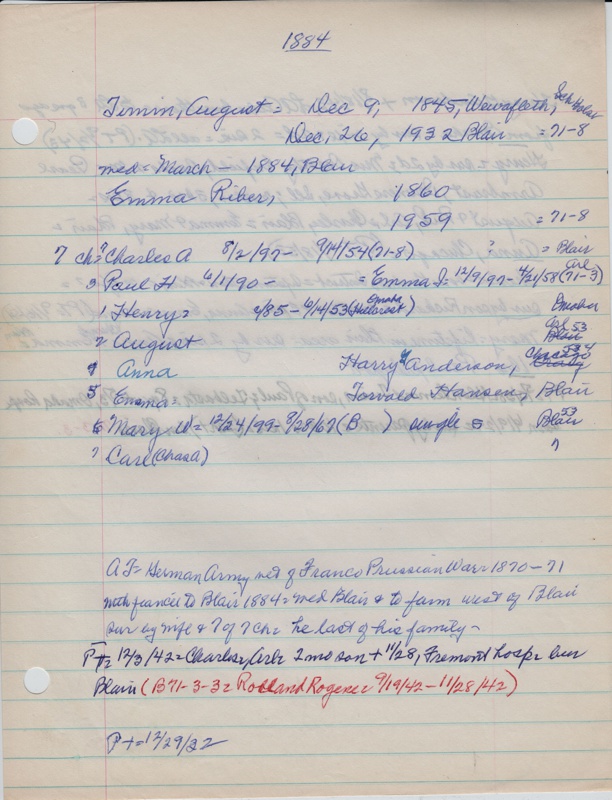 1884
Timin, August = Dec 9, 1845, Wewafleth,
Dec, 26, 1932 Blair = 71-8
med = March - 1884, Blair
Emma Riber, 1860
1959 = 71-8
7 ch = 7 Charles A 8/2/97 - 9/14/54 (71-8) = Blair
3 Paul H 6/1/90 - = Emma J = 12/9/97 - 4/21/58 (71-3) Arl
1 Henry = 2/85 - 6/14/53 (Omaha Hillcrest) Omaha
2 August Arl Blair 53
4 Anna Harry Anderson, Chicago 53
5 Emma = Torvald Hansen, Blair
6 Mary W = 12/24/99 - 8/28/67 (B ) single = Blair 53
7 Carl (Chas A) "
A T = German Army vet of Franco Prussian War = 1870 - 71
with fiancée to Blair 1884 = med Blair & to farm west of Blair
sur by wife & 7 of 7 ch = he last of his family -
P+ = 12/3/42 = Charles, Arl = 2 mo son + 11/28, Fremont hosp = bur
Blair (B71-3-3 = Rolland Rogene = 9/19/42 - 11/28/42)
P+ = 12/29/32